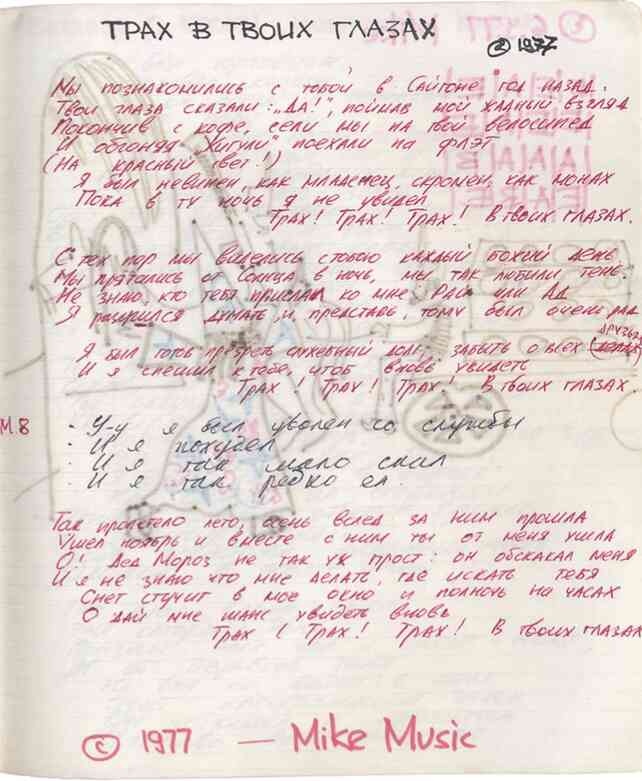 ТРАХ В ТВОИХ ГЛАЗАХ
© 1977
Мы познакомились с тобой в Сайгоне год назад.
Твои глаза сказали: „ДА!", поймав мой жадный взгляд
Покончив с кофе, сели мы на твой велосипед
И обгоняя „Жигули" поехали на флэт
(На красный свет!)
Я был невинен, как младенец, скромен, как монах
Пока в ту ночь я не увидел
Трах! Трах! Трах! В твоих глазах.
С тех пор мы виделись с тобою каждый божий день
Мы прятались от Солнца в ночь, мы так любили тень
Не знаю, кто тебя прислал ко мне, Рай или Ад
Я разучился думать и, представь, тому был очень рад
друзьях
Я был готов презреть служебный долг, забыть о всех
И я спешил к тебе, чтоб вновь увидеть
Трах! Трах! Трах! В твоих глазах.
М 8
- У-у я был уволен со службы
- И я похудел
- И я так мало спал
- И я так редко ел.
Так пролетело лето, осень вслед за ним прошла
Ушел ноябрь и вместе с ним ты от меня ушла
О! Дед Мороз не так уж прост: он обскакал меня
И я не знаю что мне делать, где искать тебя
Снег стучит в мое окно и полночь на часах
О дай мне шанс увидеть вновь
Трах! Трах! Трах! В твоих глазах
© 1977 — Mike Music